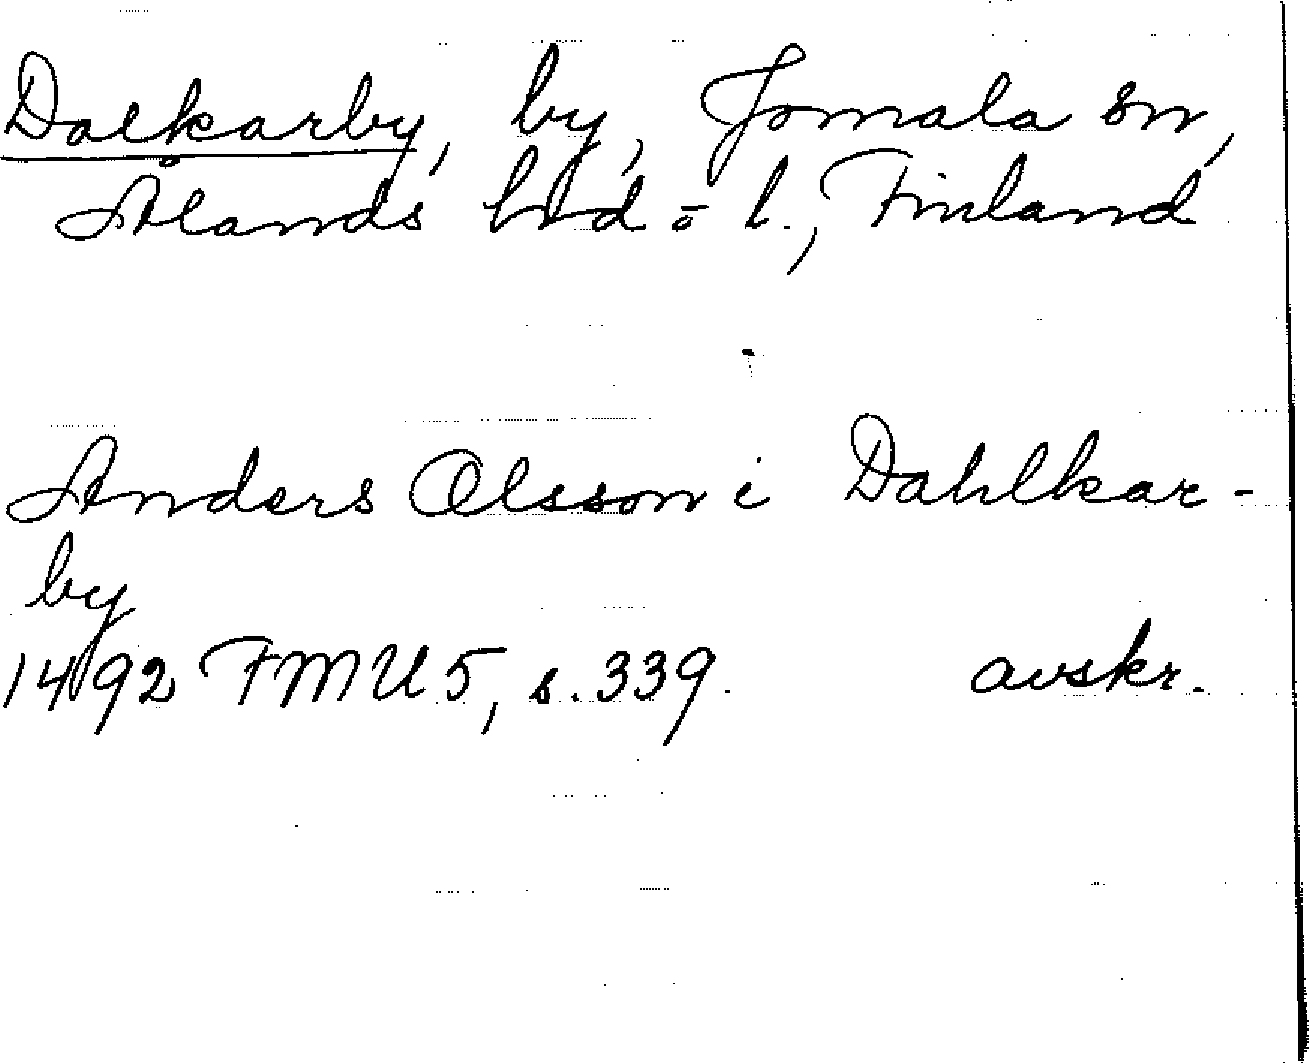 Dalkarby, by, Jomala sn,
Ålands hd o l., Finland
Anders Olsson i Dahlkar-
by
1492 FMU 5, s. 339. avskr.